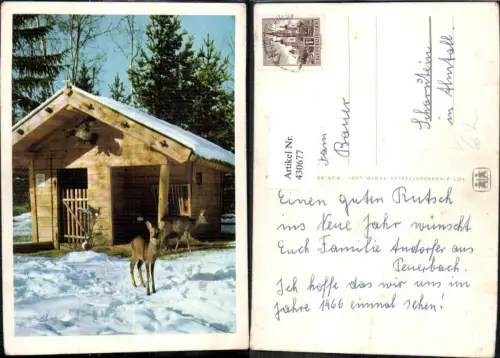 Artikel Nr.
430677
Fam
Bauer
Scharnstein
in Almtal.
Einen guten Rutsch
ins Neue Jahr wünscht
Euch Familie Andorfer aus
Peuerbach.
Ich hoffe das wir uns im
Jahre 1966 einmal sehen!